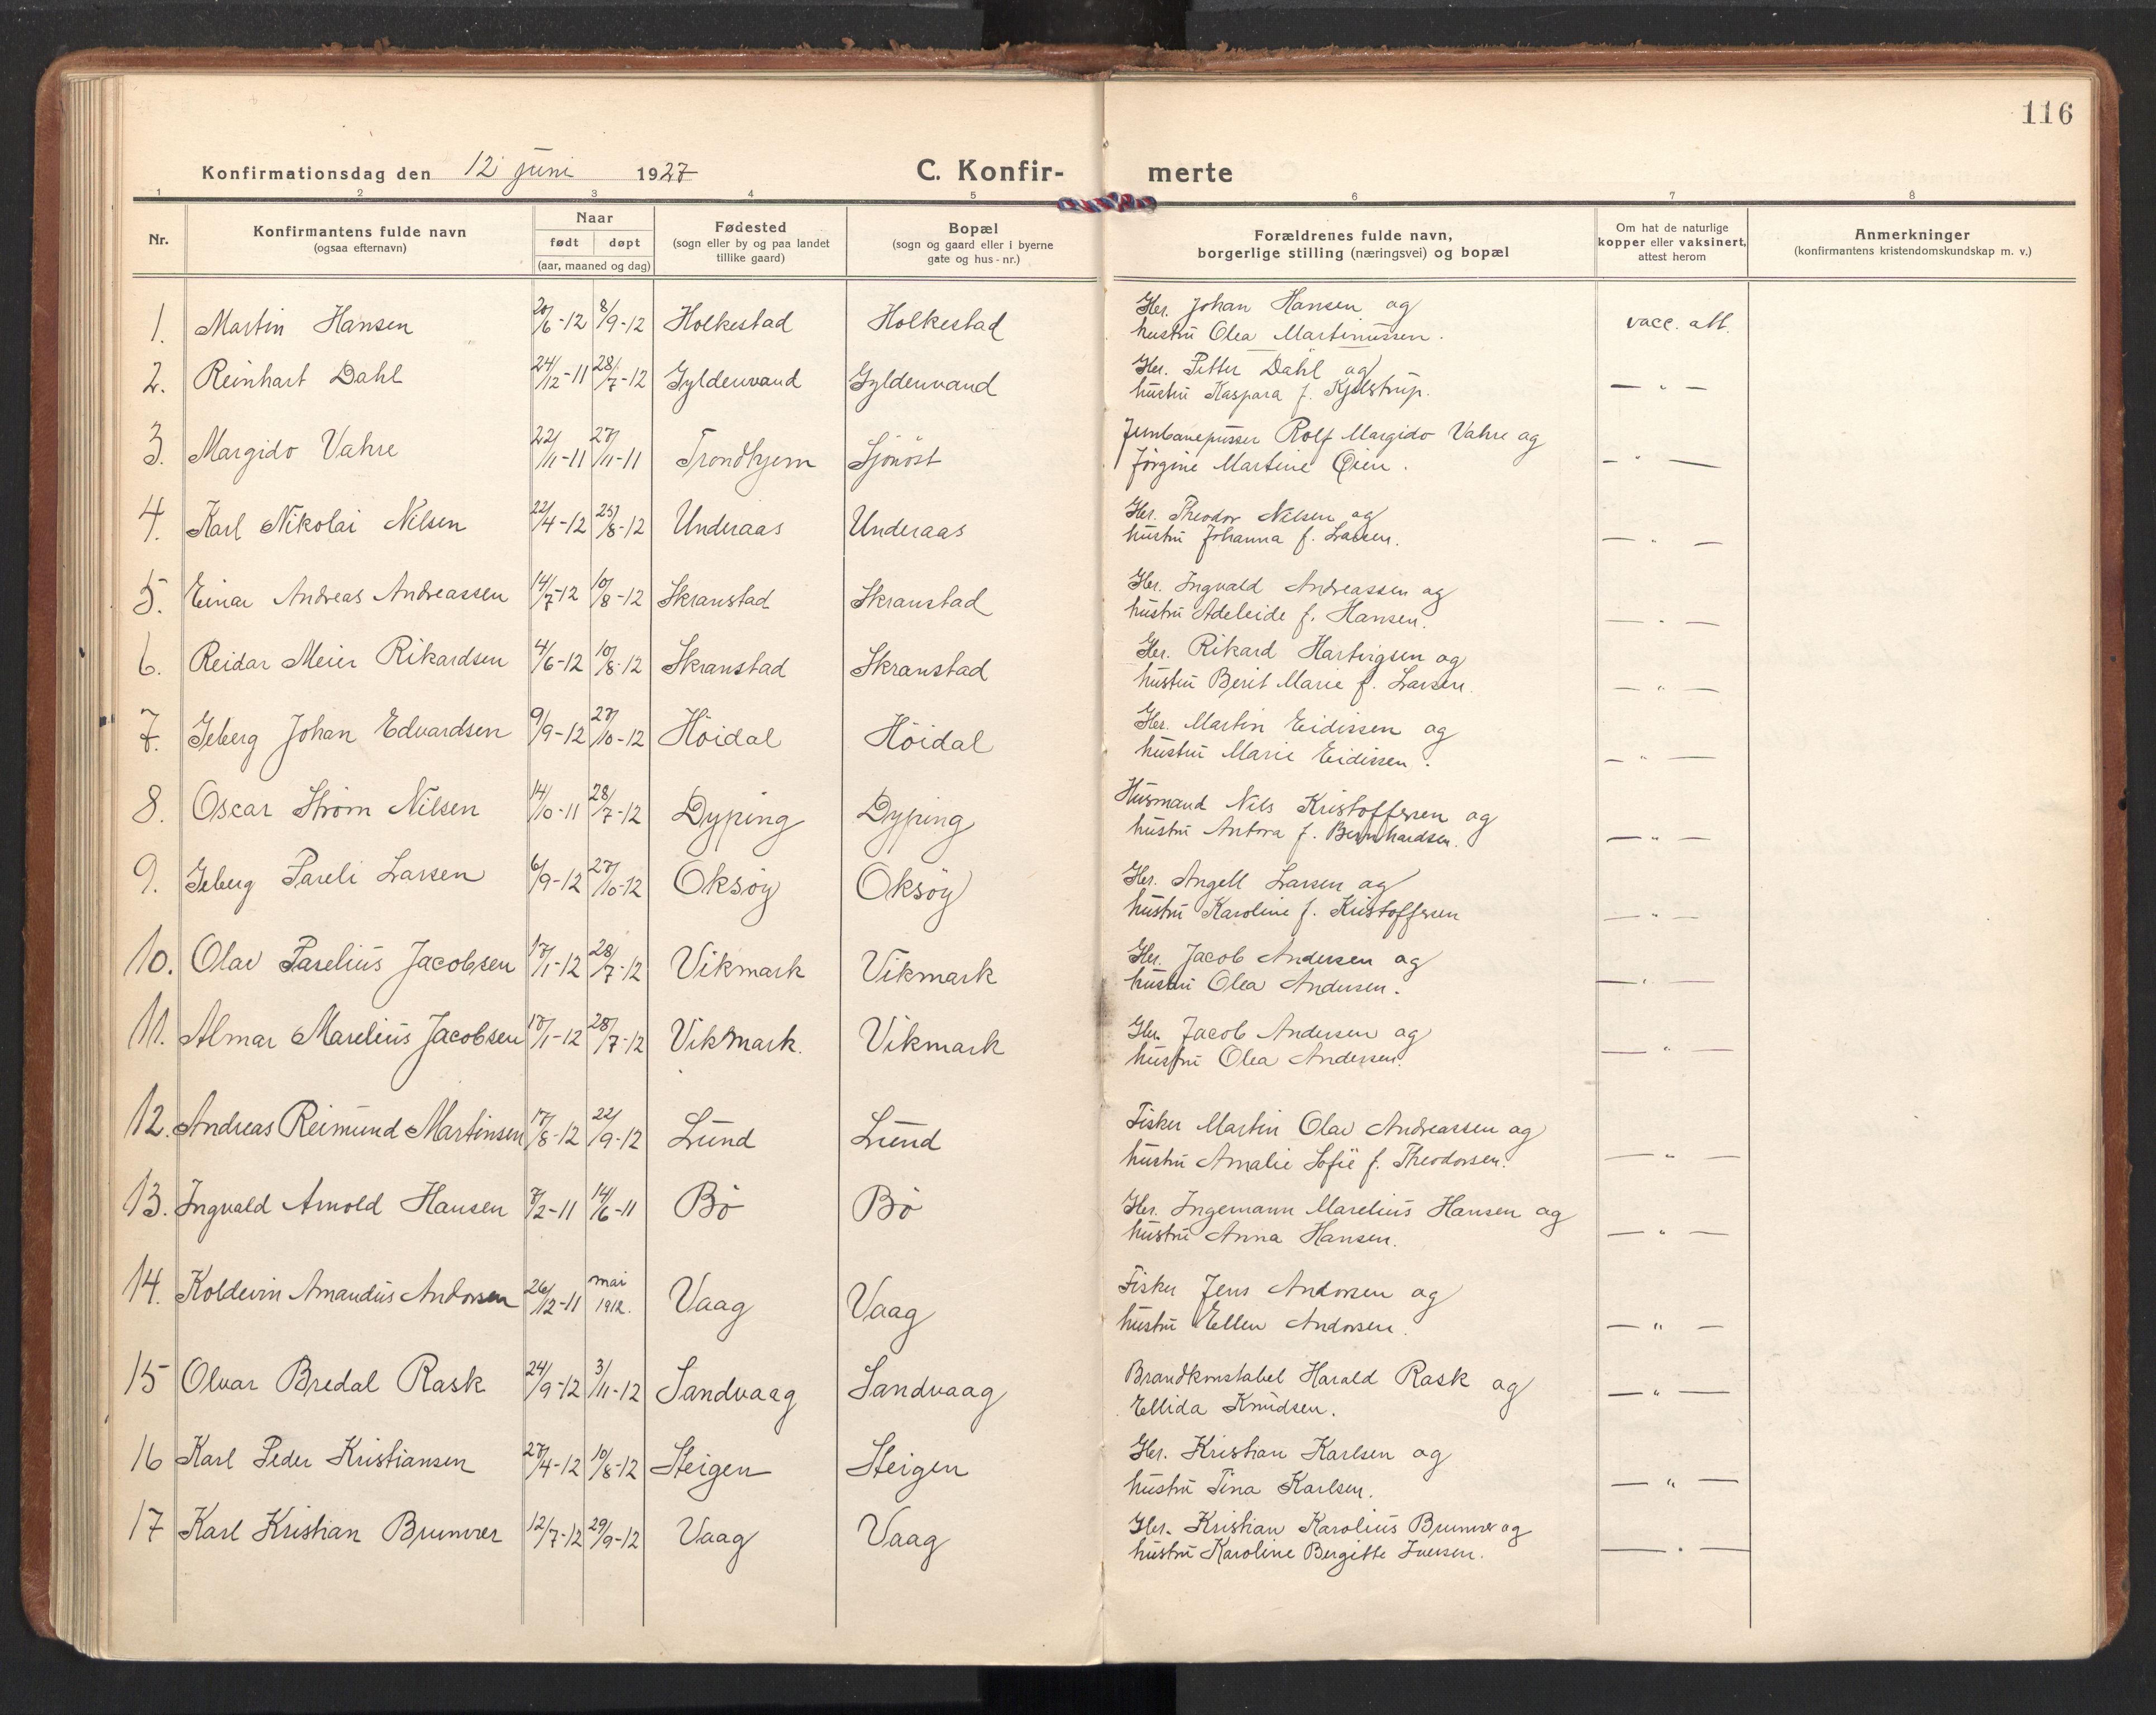 116
Konfirmationsdag den 12 juni 1927 C. Konfir- merte
1 2 3 4 5 6 7 8
Nr.
Konfirmantens fulde navn
(ogsaa efternavn)
Naar
født døpt
(aar, maaned og dag)
Fødested
(sogn eller by og paa landet
tillike gaard)
Bopæl
(sogn og gaard eller i byerne
gate og hus-nr.)
Forældrenes fulde navn,
borgerlige stilling (næringsvei) og bopæl
Om hat de naturlige
kopper eller vaksinert,
attest herom
Anmerkninger
(konfirmantens kristendomskundskap m. v.)
1. Martin Hansen 20/6-12 8/9-12 Holkestad Holkestad Gbr. Johan Hansen og
hustru Olea Martinussen. vacc. att.
2. Reinhart Dahl 24/12-11 28/7-12 Gyldenvand Gyldenvand Gbr. Petter Dahl og
hustru Kaspara f. Kjelstrup. — " —
3. Margido Vahre 22/11-11 27/11-11 Trondhjem Sjönöst Jernbanepusser Rolf Margido Vahre og
Jörgine Martine Øien. — " —
4. Karl Nikolai Nilsen 22/4-12 25/8-12 Underaas Underaas Gbr. Theodor Nilsen og
hustru Johanna f. Larsen. — " —
5. Einar Andreas Andreassen 14/7-12 10/8-12 Skranstad Skranstad Gbr. Ingvald Andreassen og
hustru Adeleide f. Hansen. — " —
6. Reidar Meier Rikardsen 4/6-12 10/8-12 Skranstad Skranstad Gbr. Rikard Hartvigsen og
hustru Berit Marie f. Larsen. — " —
7. Seberg Johan Edvardsen 9/9-12 27/10-12 Höidal Höidal Gbr. Martin Eidissen og
hustru Marie Eidissen. — " —
8. Oscar Strøm Nilsen 14/10-11 28/7-12 Dyping Dyping Husmand Nils Kristoffersen og
hustru Antora f. Bernhardsen. — " —
9. Seberg Pareli Larsen 6/9-12 27/10-12 Oksöy Oksöy Gbr. Angell Larsen og
hustru Karoline f. Kristoffersen — " —
10. Olav Parelius Jacobsen 17/1-12 28/7-12 Vikmark Vikmark Gbr. Jacob Andersen og
hustru Olea Andersen. — " —
11. Almar Marelius Jacobsen 17/1-12 28/7-12 Vikmark. Vikmark Gbr. Jacob Andersen og
hustru Olea Andersen. — " —
12. Andreas Reimund Martinsen 17/8-12 22/9-12 Lund Lund Fisker Martin Olav Andreassen og
hustru Amalie Sofie f. Theodorsen. — " —
13. Ingvald Arnold Hansen 7/2-11 14/6-11 Bö Bö Gbr. Ingemann Marelius Hansen og
hustru Anna Hansen. — " —
14. Koldevin Amandus Andorsen 26/12-11 mai 1912. Vaag Vaag Fisker Jens Andorsen og
hustru Ellen Andorsen. — " —
15 Olvar Bredal Rask 24/9-12 3/11-12 Sandvaag Sandvaag Brandkonstabel Harald Rask og
Ellida Knudsen. — " —
16 Karl Peder Kristiansen 27/4-12 10/8-12 Steigen Steigen Gbr. Kristian Karlsen og
hustru Tina Karlsen. — " —
17 Karl Kristian Brunvær 12/7-12 29/9-12 Vaag Vaag Gbr. Kristian Karolius Brunvær og
hustru Karoline Bergitte Iversen. — " —